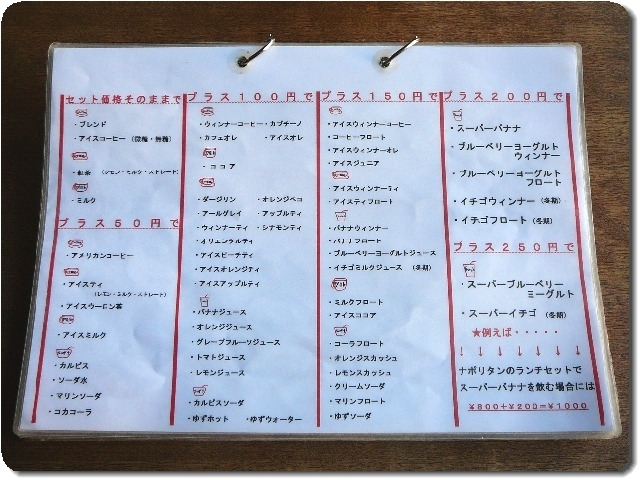 セット価格そのままで
・ブレンド
・アイスコーヒー (微糖・無糖)
・紅茶 (レモン・ミルク・ストレート)
・ミルク
プラス50円で
・アメリカンコーヒー
・アイスティ
(レモン・ミルク・ストレート)
・アイスウーロン茶
・アイスミルク
・カルピス
・ソーダ水
・マリンソーダ
・コカコーラ
プラス100円で
・ウィンナーコーヒー ・カプチーノ
・カフェオレ ・アイスオレ
・ココア
・ダージリン ・オレンジペコ
・アールグレイ ・アップルティ
・ウィンナーティ ・シナモンティ
・オリエンタルティ
・アイスピーチティ
・アイスオレンジティ
・アイスアップルティ
・バナナジュース
・オレンジジュース
・グレープフルーツジュース
・トマトジュース
・レモンジュース
・カルピスソーダ
・ゆずホット ・ゆずウォーター
プラス150円で
・アイスウィンナーコーヒー
・コーヒーフロート
・アイスウィンナーオレ
・アイスジュニア
・アイスウィンナーティ
・アイスティフロート
・バナナウィンナー
・バナナフロート
・ブルーベリーヨーグルトジュース
・イチゴミルクジュース (冬期)
・ミルクフロート
・アイスココア
・コーラフロート
・オレンジスカッシュ
・レモンスカッシュ
・クリームソーダ
・マリンフロート
・ゆずソーダ
プラス200円で
・スーパーバナナ
・ブルーベリーヨーグルト
ウィンナー
・ブルーベリーヨーグルト
フロート
・イチゴウィンナー (冬期)
・イチゴフロート (冬期)
プラス250円で
・スーパーブルーベリー
ヨーグルト
・スーパーイチゴ (冬期)
★例えば・・・・・
↓ ↓ ↓ ↓ ↓ ↓ ↓
ナポリタンのランチセットで
スーパーバナナを飲む場合には
¥800+¥200=¥1000